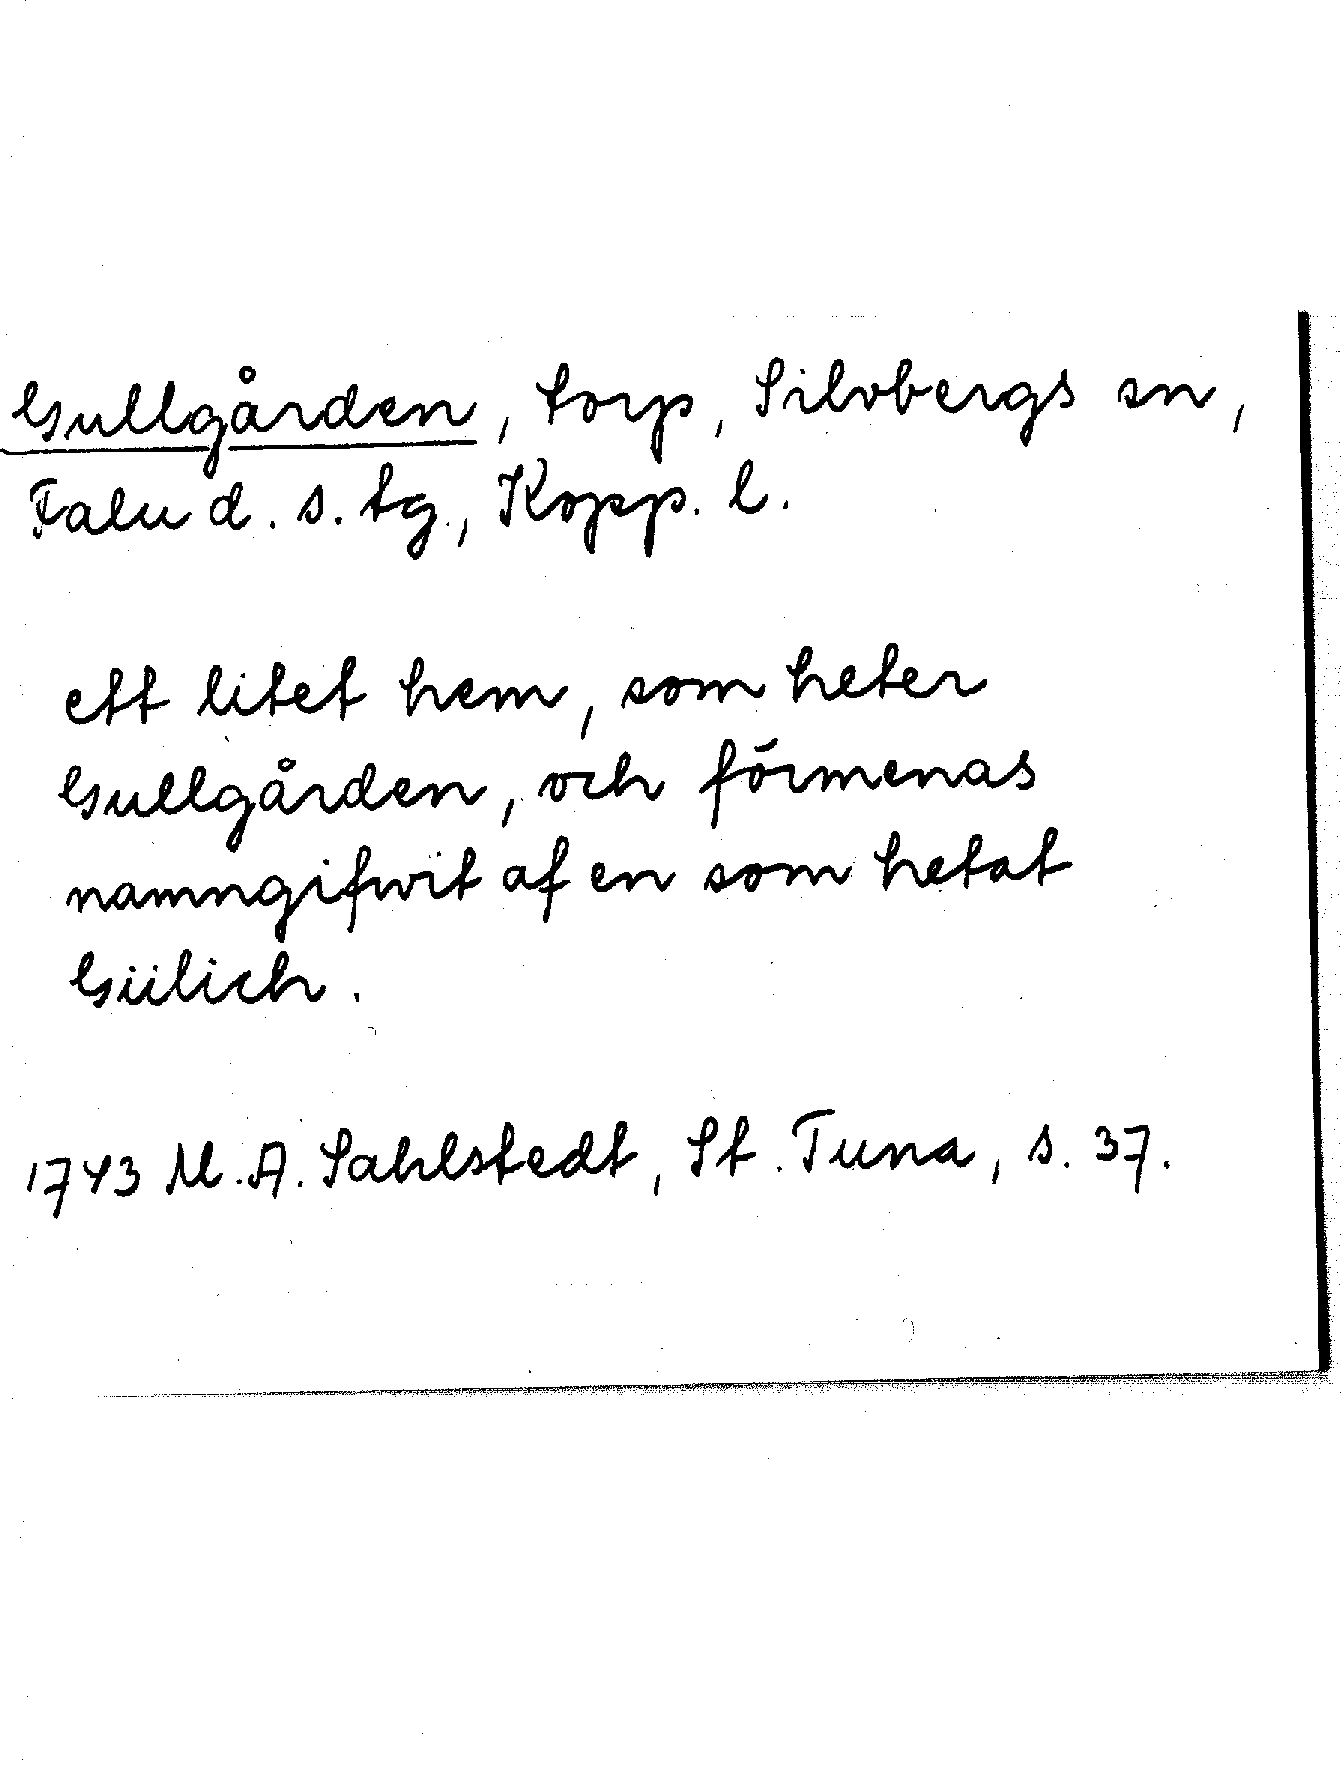 Gullgården, torp, Silvbergs sn,
Falu d. s. tg., Kopp. l.
ett litet hem, som heter
Gullgården, och förmenas
namngifwit af en som hetat
Gülich.
1743 M.A. Sahlstedt, St. Tuna, s. 37.